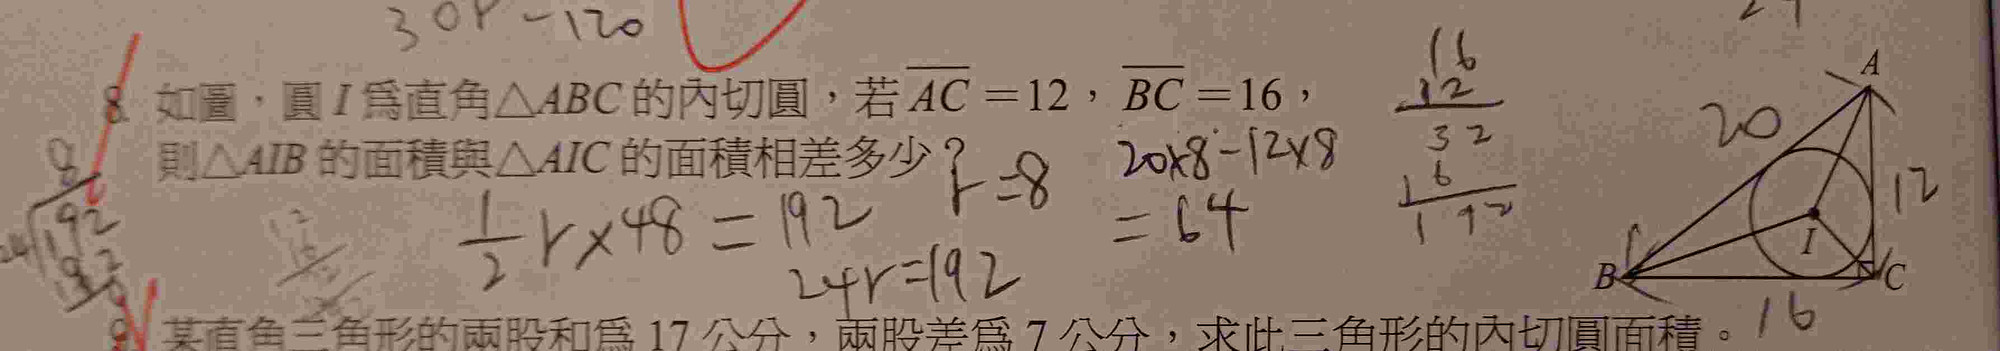 30r-120
8. 如圖，圓 I 為直角△ABC 的內切圓，若 AC =12，BC =16，
則△AIB 的面積與△AIC 的面積相差多少？
r=8
20×8-12×8
=64
1/2 r×48=192
24r=192
16
12
32
16
192
8
24 192
192
A
20
12
I
B
C
16
9. 某直角三角形的兩股和為 17 公分，兩股差為 7 公分，求此三角形的內切圓面積。